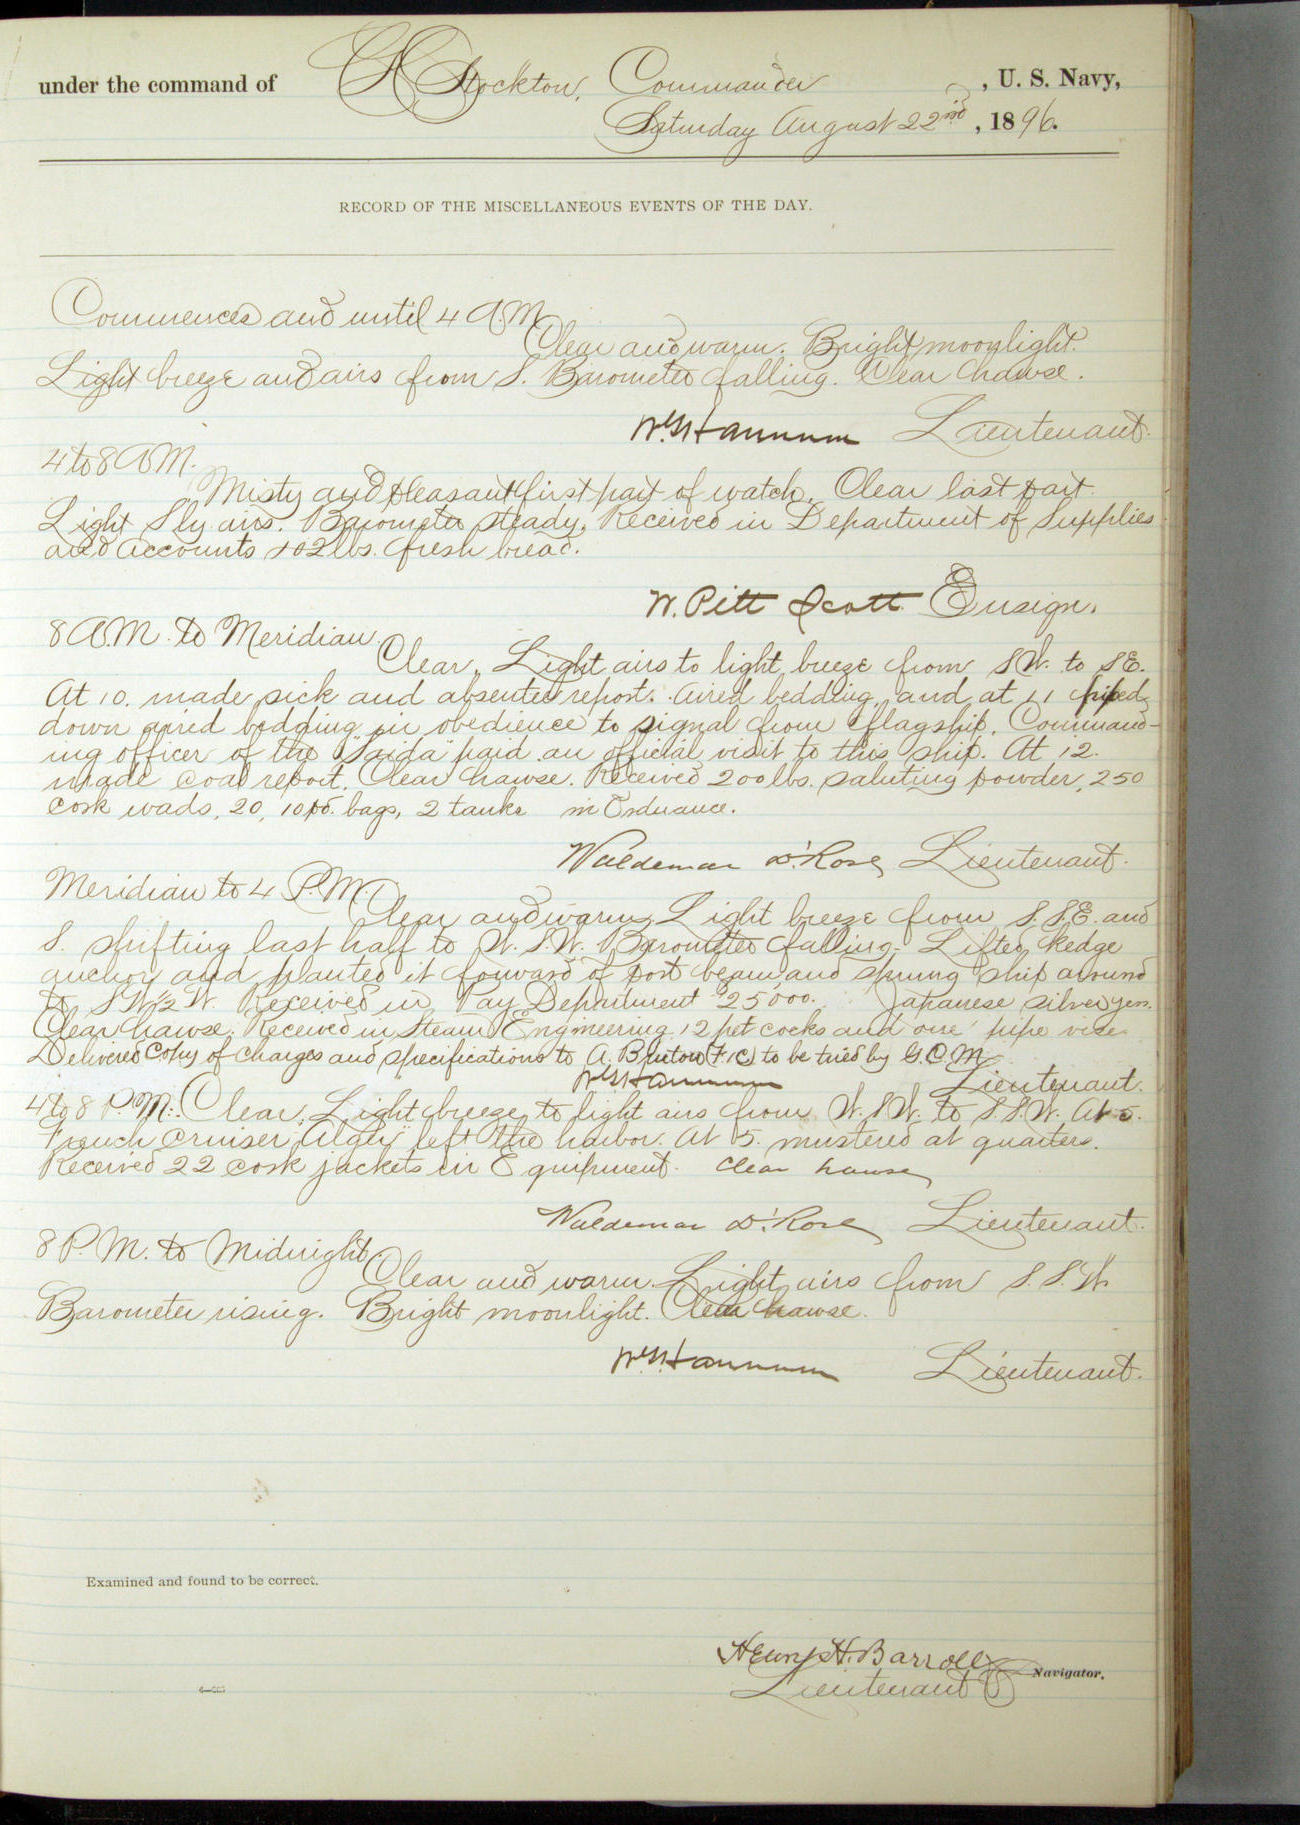 under the command of C H Stockton, Commander, U. S. Navy,
Saturday August 22nd, 1896.
RECORD OF THE MISCELLANEOUS EVENTS OF THE DAY.
Commences and until 4 A.M.
Clear and warm. Bright moonlight.
Light breeze and airs from S. Barometer falling. Clear hawse.
Hannum Lieutenant.
4 to 8 A.M.
Misty and pleasant first part of watch. Clear last part.
Light S'ly airs. Barometer steady. Received in Department of Supplies
and Accounts 102 lbs. fresh bread.
W. Pitt Scott Ensign.
8 A.M. to Meridian.
Clear, Light airs to light breeze from SW. to SE.
At 10. made sick and absentee report. Aired bedding, and at 11 piped
down aired bedding in obedience to signal from flagship. Command-
ing officer of the "Saida" paid an official visit to this ship. At 12.
made coal report. Clear hawse. Received 200 lbs. saluting powder, 250
cork wads, 20, 10 pd. bags, 2 tanks in Ordnance.
Waldemar D'Rose, Lieutenant.
Meridian to 4 P.M.
Clear and warm, Light breeze from S.S.E. and
S. shifting last half to W.S.W. Barometer falling. Lifted kedge
anchor and planted it forward of port beam, and sprung ship around
to SW ½ W. Received in Pay Department $25000. Japanese silver yen.
Clear hawse. Received in Steam Engineering 12 pet cocks and one pipe vise.
Delivered copy of charges and specifications to A. (F.1C) to be tried by G.C.M.
Hannum Lieutenant.
4 to 8 P.M. Clear, Light breeze to light airs from W.SW. to S.S.W. At 5.
French cruiser "Alger" left the harbor. At 5. mustered at quarters.
Received 22 cork jackets in Equipment. Clear hawse,
Waldemar D'Rose Lieutenant.
8 P.M. to Midnight.
Clear and warm. Light airs from S.S.W.
Barometer rising. Bright moonlight. Clear hawse.
Hannum Lieutenant.
Examined and found to be correct.
Henry H. Barroll
Lieutenant Navigator.